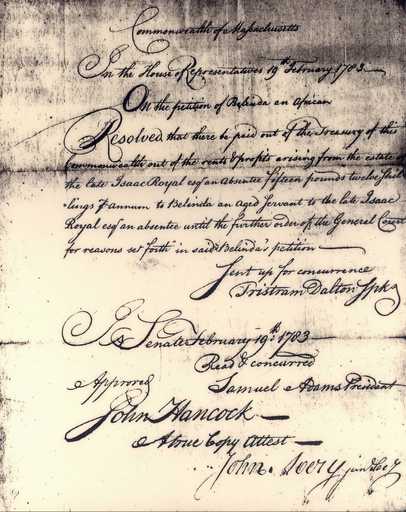 Commonwealth of Massachusetts
In the House of Representatives 19th February 1783
On the petition of Belinda an African
Resolved that there be paid out of the Treasury of this
Commonwealth out of the rents & profits arising from the estate of
the late Isaac Royal esqr an Absentee fifteen pounds twelve shil
lings ⅌ annum to Belinda an Aged Servant to the late Isaac
Royal esqr an absentee until the further order of the General Court
for reasons set forth in said Belinda's petition
Sent up for concurrence
Tristram Dalton Spkr
In Senate February 19th 1783
Read & concurred
Samuel Adams President
Approved
John Hancock
A true Copy Attest
John Avery jun Secy